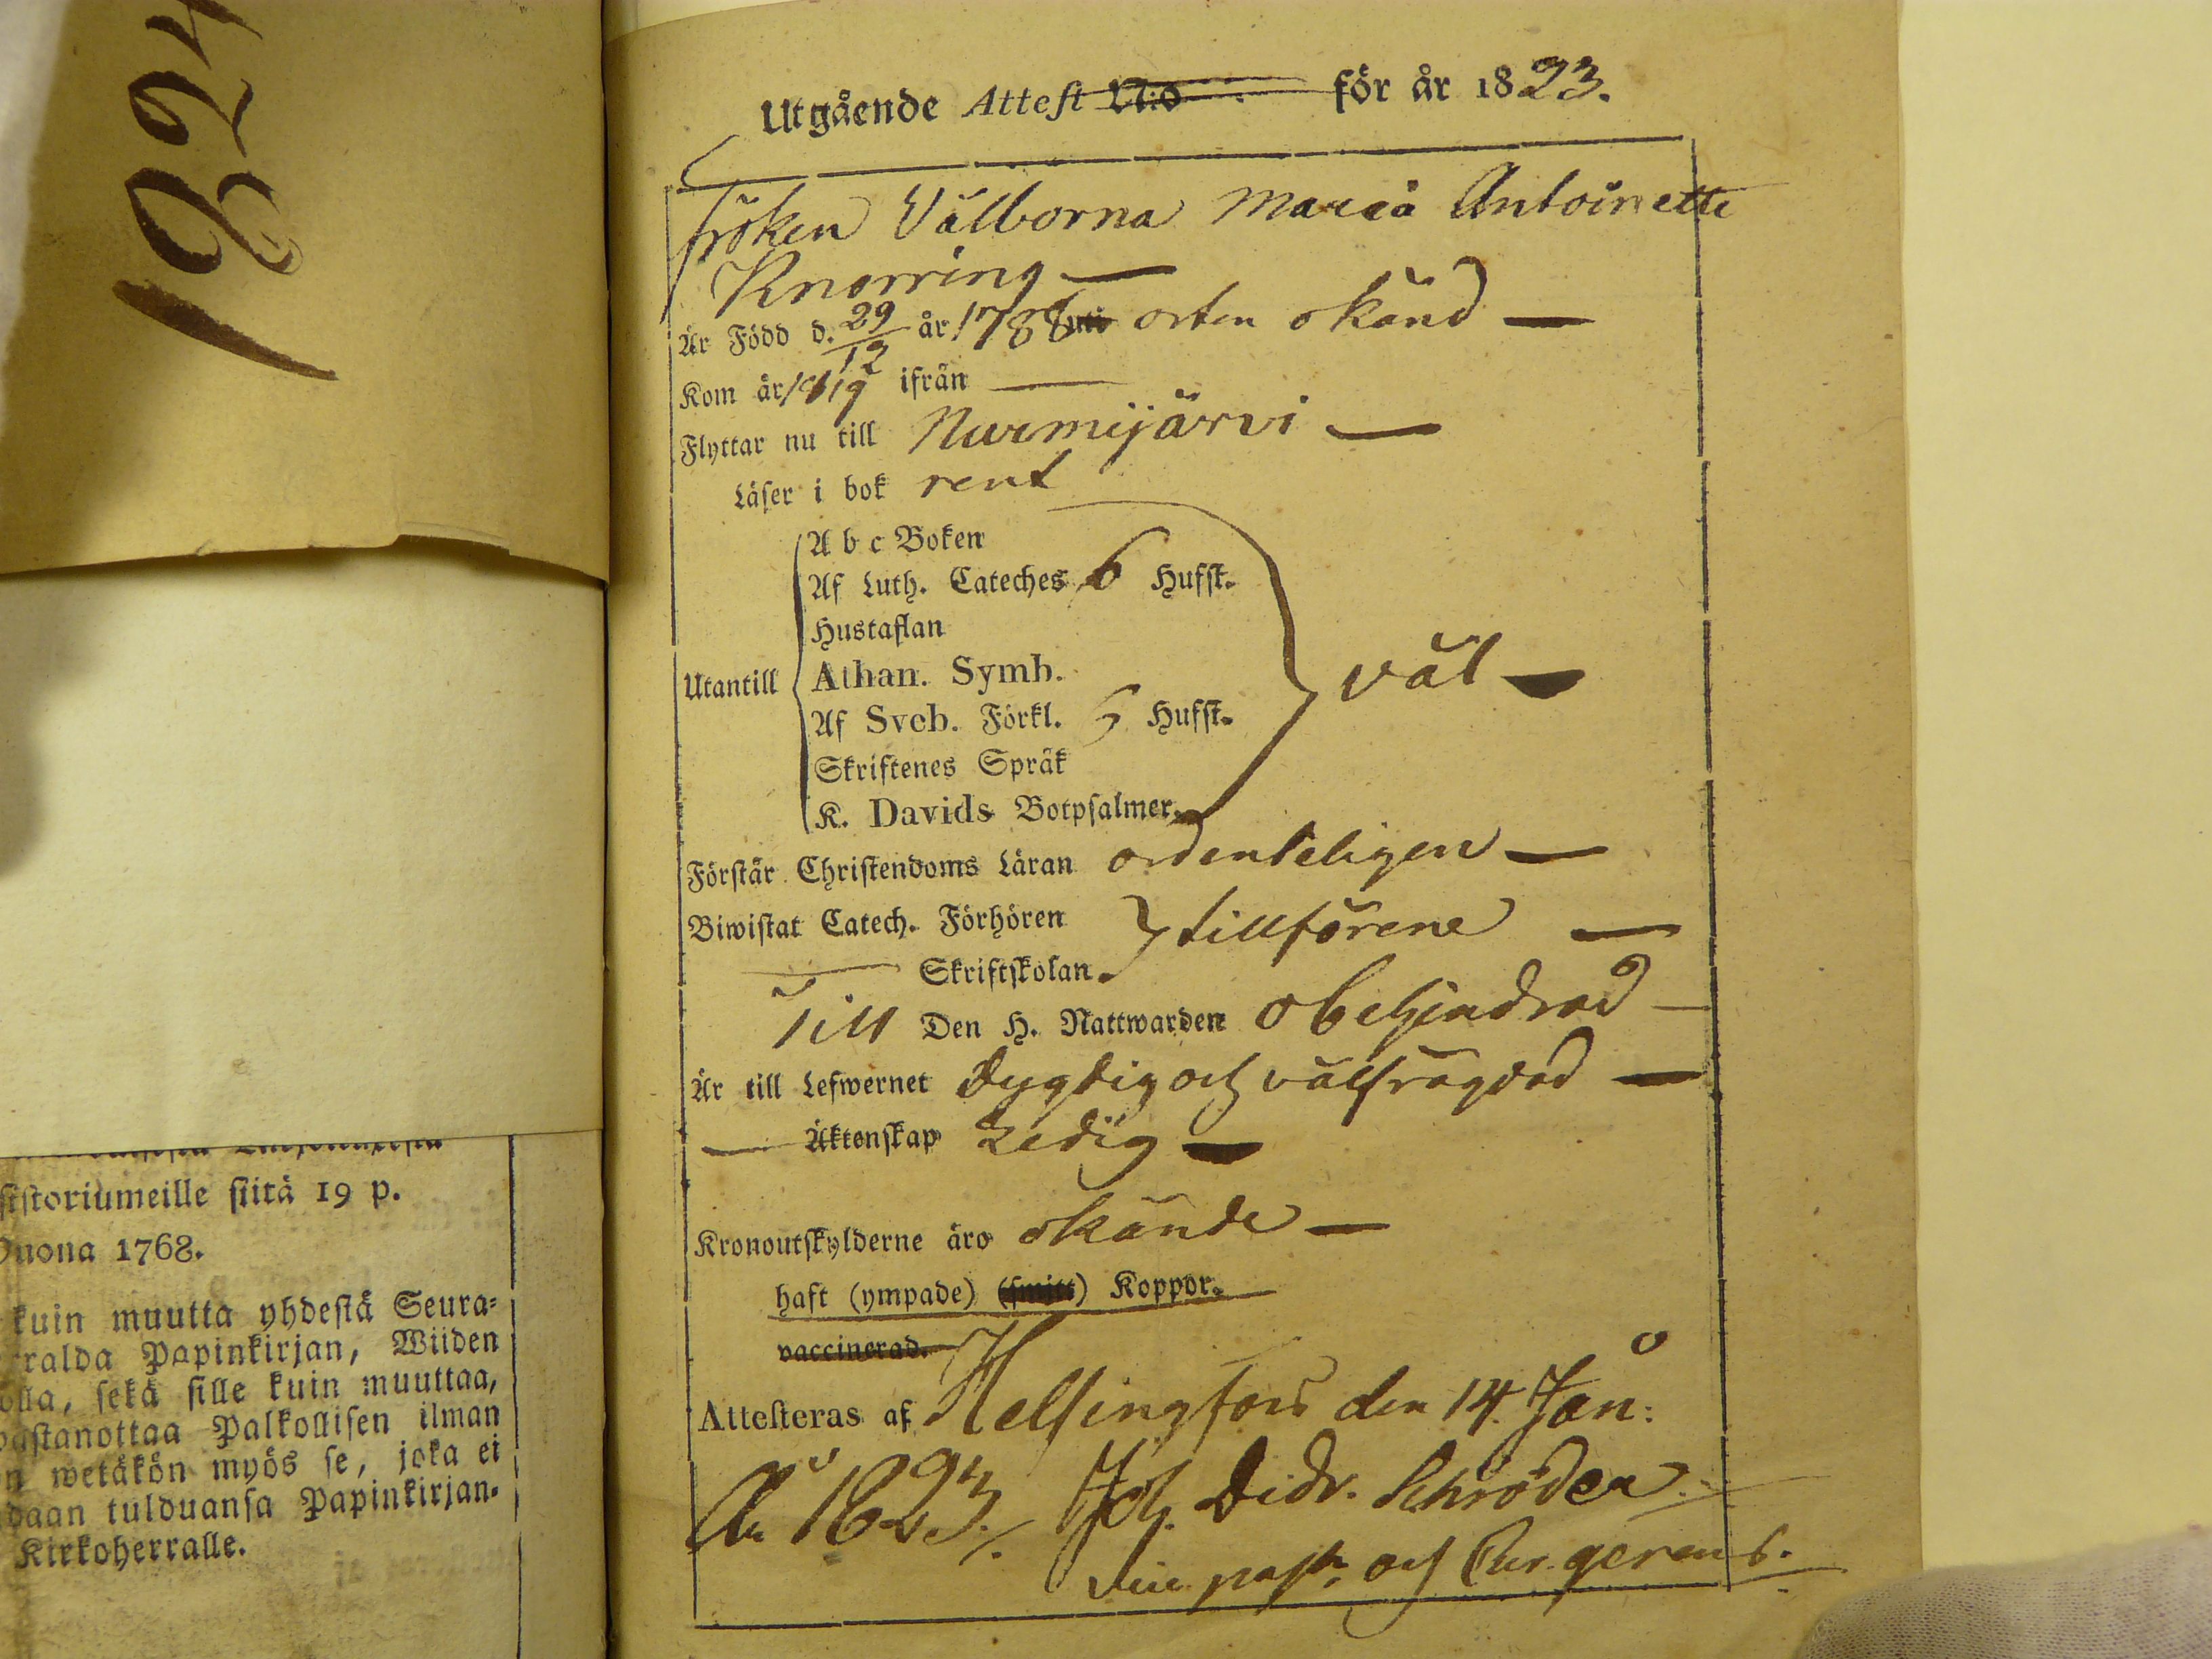 1824
sistoriumeille siitä 19 p.
Duona 1768.
kuin muutta yhdestä Seura-
ralda Papinkirjan, Wiiden
olla, sekä sille kuin muuttaa,
wastanottaa Palkollisen ilman
n wetäkön myös se, joka ei
daan tulduansa Papinkirjan-
Kirkoherralle.
Utgående Attest N:o för år 1823.
fröken Välborna Maria Antoinette
Knorring —
Är Född d. 29/12 år 1788 uti orten okänd —
Kom år 1819 ifrån —
Flyttar nu till Nurmijärvi —
Läser i bok rent
A b c Boken
Af Luth. Cateches 6 Hufst.
Hustaflan
Utantill Athan. Symb. väl —
Af Sveb. Förkl. 5 Hufst.
Skriftenes Språk
K. Davids Botpsalmer.
Förstår Christendoms Läran ordenteligen —
Biwistat Catech. Förhören } tillförene —
— Skriftskolan.
Till Den H. Nattwarden obehindrad —
Är till Lefwernet dygdig och välfrägdad —
— Äktenskap Ledig —
Kronoutskylderne äro okände —
haft (ympade) (smitt) Koppor.
vaccinerad.
Attesteras af Helsingfors den 14. Jan:
År 1823. Joh. Didr. Schröder.
Vice past. och Cur. gerens.